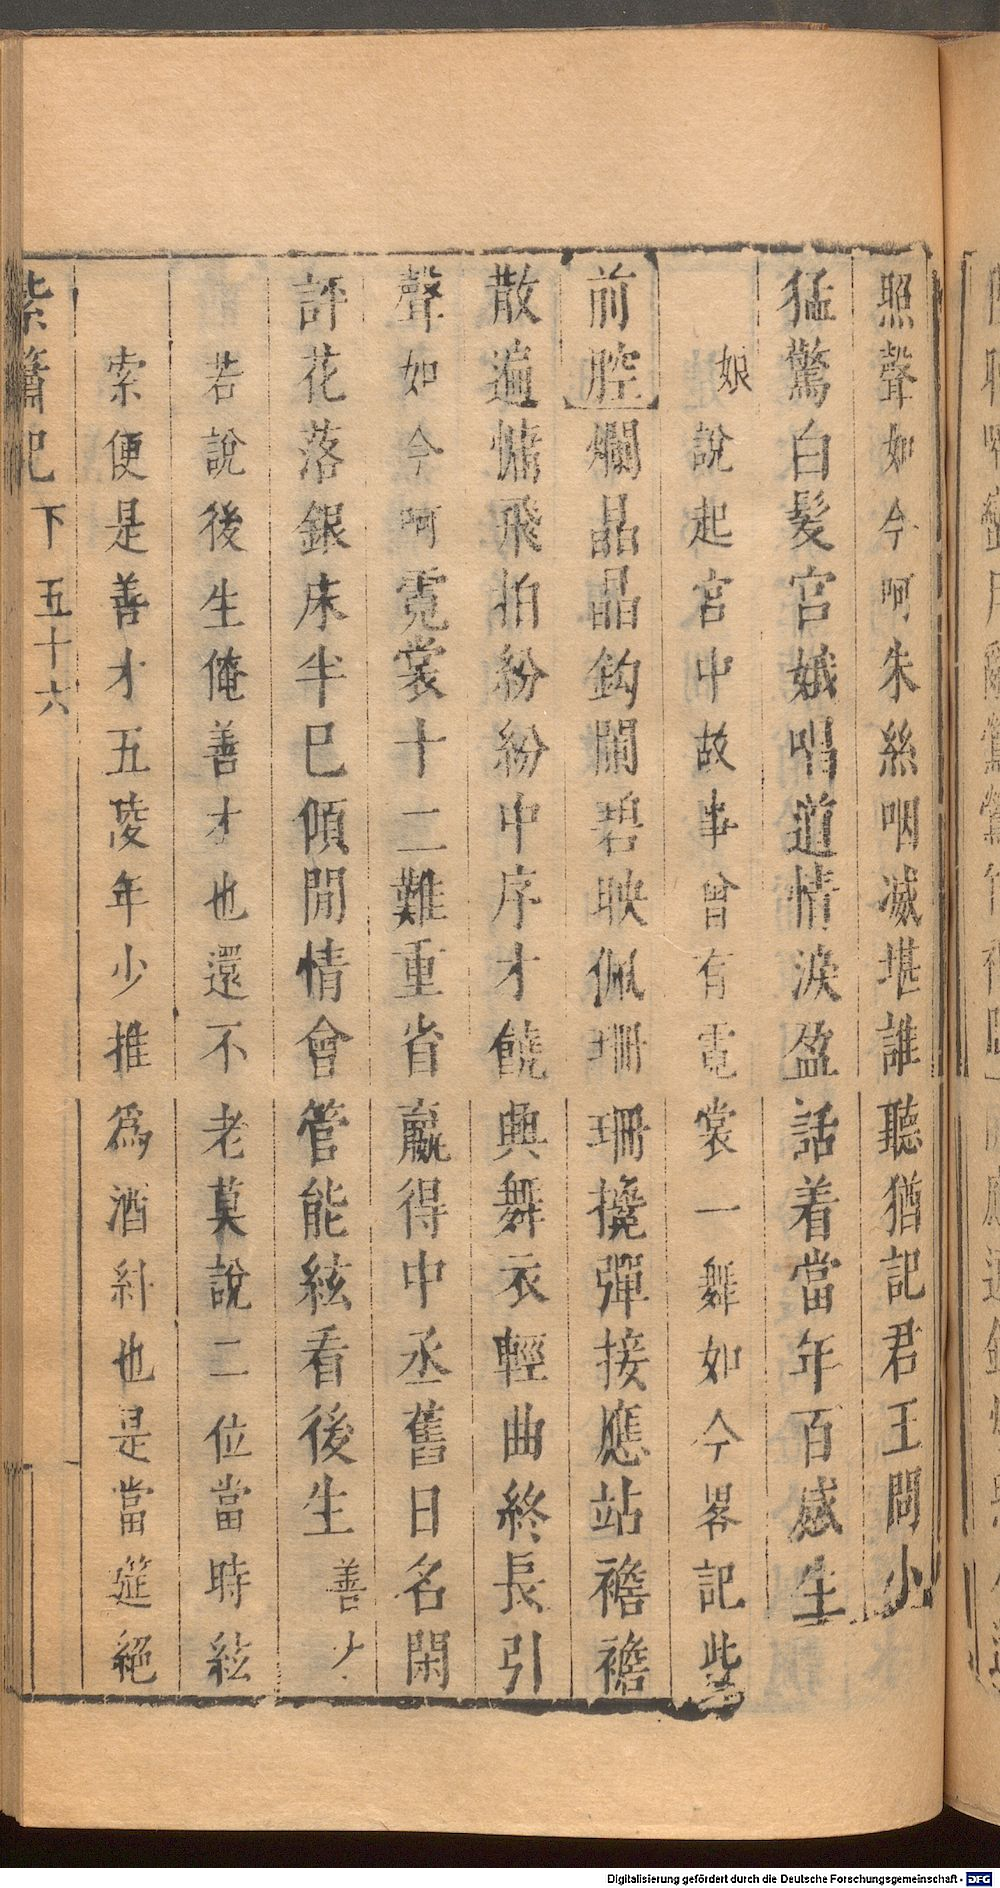 照聲如今呵朱絲咽滅堪誰聽猶記君王問小
猛驚白髮宮娥唱道情淚盈話着當年百感生
娘說起宮中故事曾有霓裳一舞如今畧記些
前腔爛晶晶鈎闌碧映佩珊珊攙彈接應站襜襜
散遍慵飛拍紛紛中序才饒與舞衣輕曲終長引
聲如今呵霓裳十二難重省贏得中丞舊日名閑
評花落銀床半已傾閒情會管能絃看後生善才
若說後生俺善才也還不老莫說二位當時絃
索便是善才五陵年少推為酒糾也是當筵絕
紫簫記 下 五十六
Digitalisierung gefördert durch die Deutsche Forschungsgemeinschaft - DFG